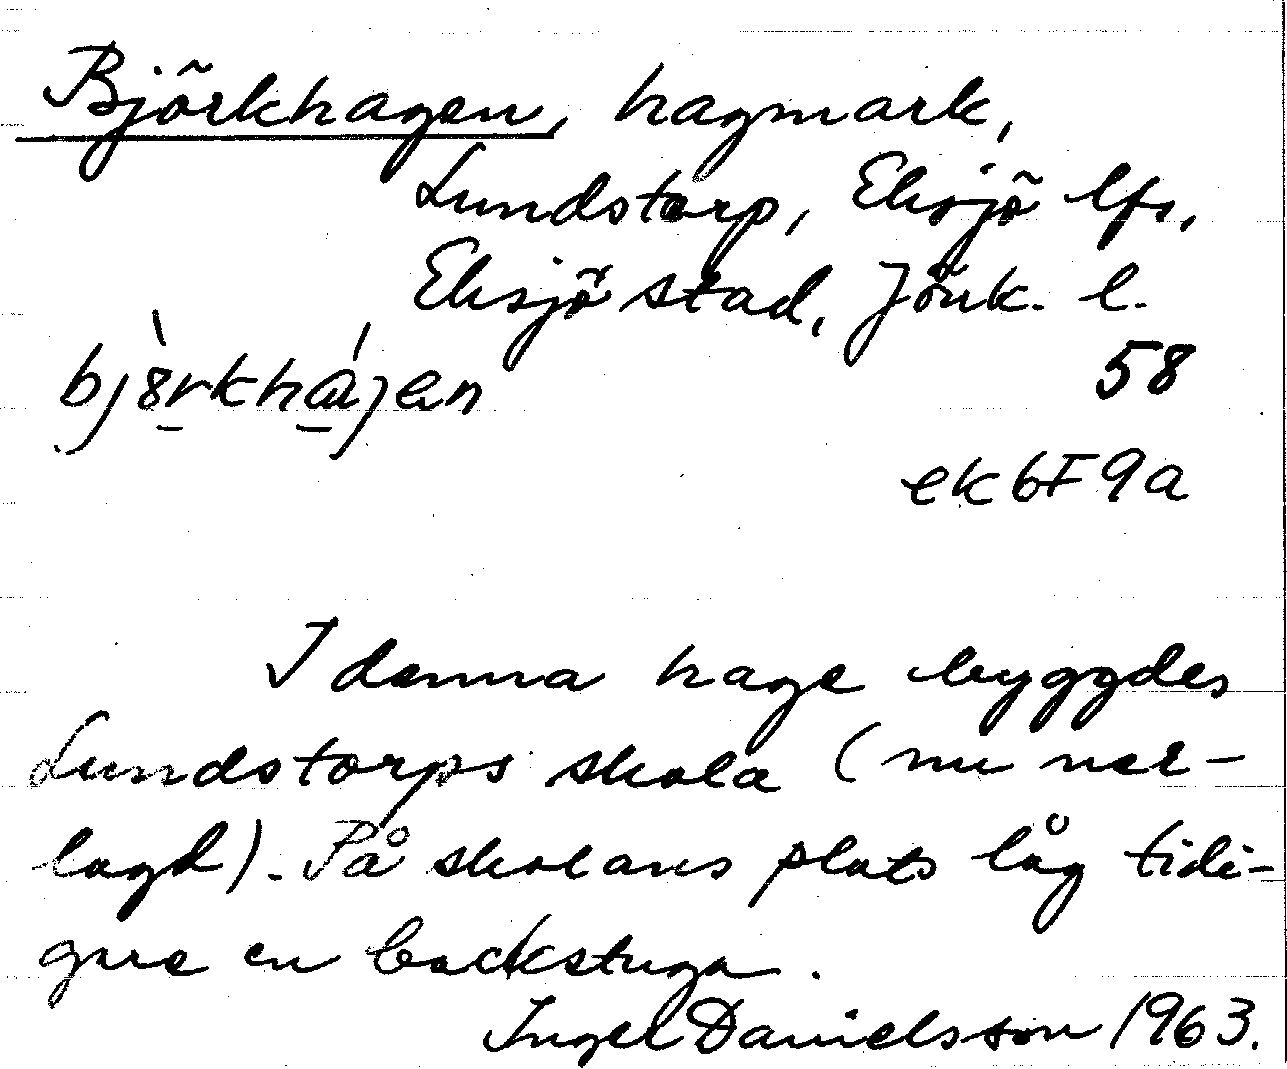 Björkhagen, hagmark,
Lundstorp, Eksjö lfs,
Eksjö stad, Jönk. l.
bjö̀rkhá̱jen
58
ek 6F 9a
I denna hage byggdes
Lundstorps skola (nu ner-
lagd). På skolans plats låg tidi-
gare en backstuga.
Ingel Danielsson 1963.